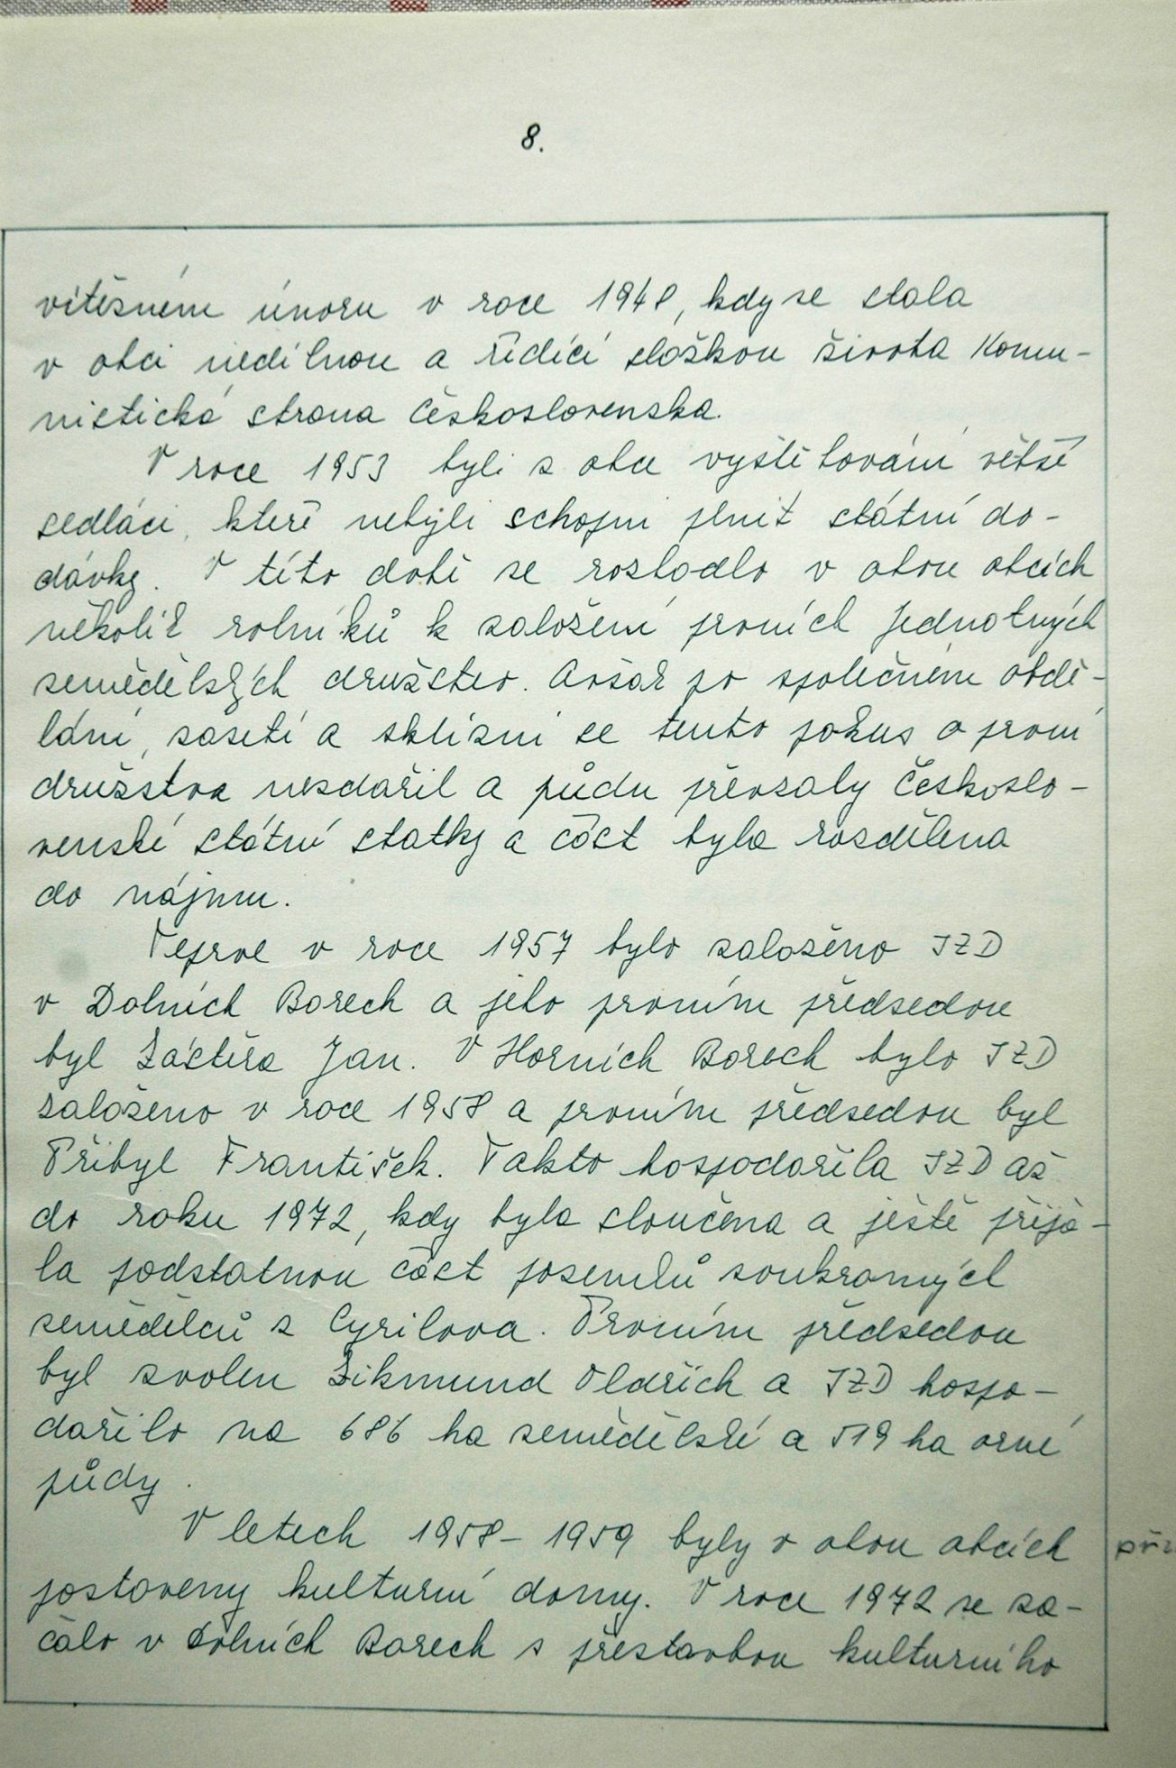 8.
vítězném únoru v roce 1948, kdy se stala
v obci nedílnou a řídící složkou života Komu-
nistická strana Československa.
V roce 1953 byli z obce vyštěhováni větší
sedláci, kteří nebyli schopni plnit státní do-
dávky. V této době se rozhodlo v obou obcích
několik rolníků k založení prvních Jednotných
zemědělských družstev. Avšak po společném obdě-
lání, zasetí a sklizni se tento pokus o první
družstva nezdařil a půdu převzaly Českoslo-
venské státní statky a část byla rozdělena
do nájmu.
Teprve v roce 1957 bylo založeno JZD
v Dolních Borech a jeho prvním předsedou
byl Šáctěra Jan. V Horních Borech bylo JZD
založeno v roce 1958 a prvním předsedou byl
Přibyl František. Takto hospodařila JZD až
do roku 1972, kdy byla sloučena a ještě přija-
la podstatnou část pozemků soukromých
zemědělců z Cyrilova. Prvním předsedou
byl zvolen Zikmund Oldřich a JZD hospo-
dařilo na 686 ha zemědělské a 519 ha orné
půdy.
V letech 1958-1959 byly v obou obcích
postaveny kulturní domy. V roce 1972 se za-
čalo v Dolních Borech s přestavbou kulturního